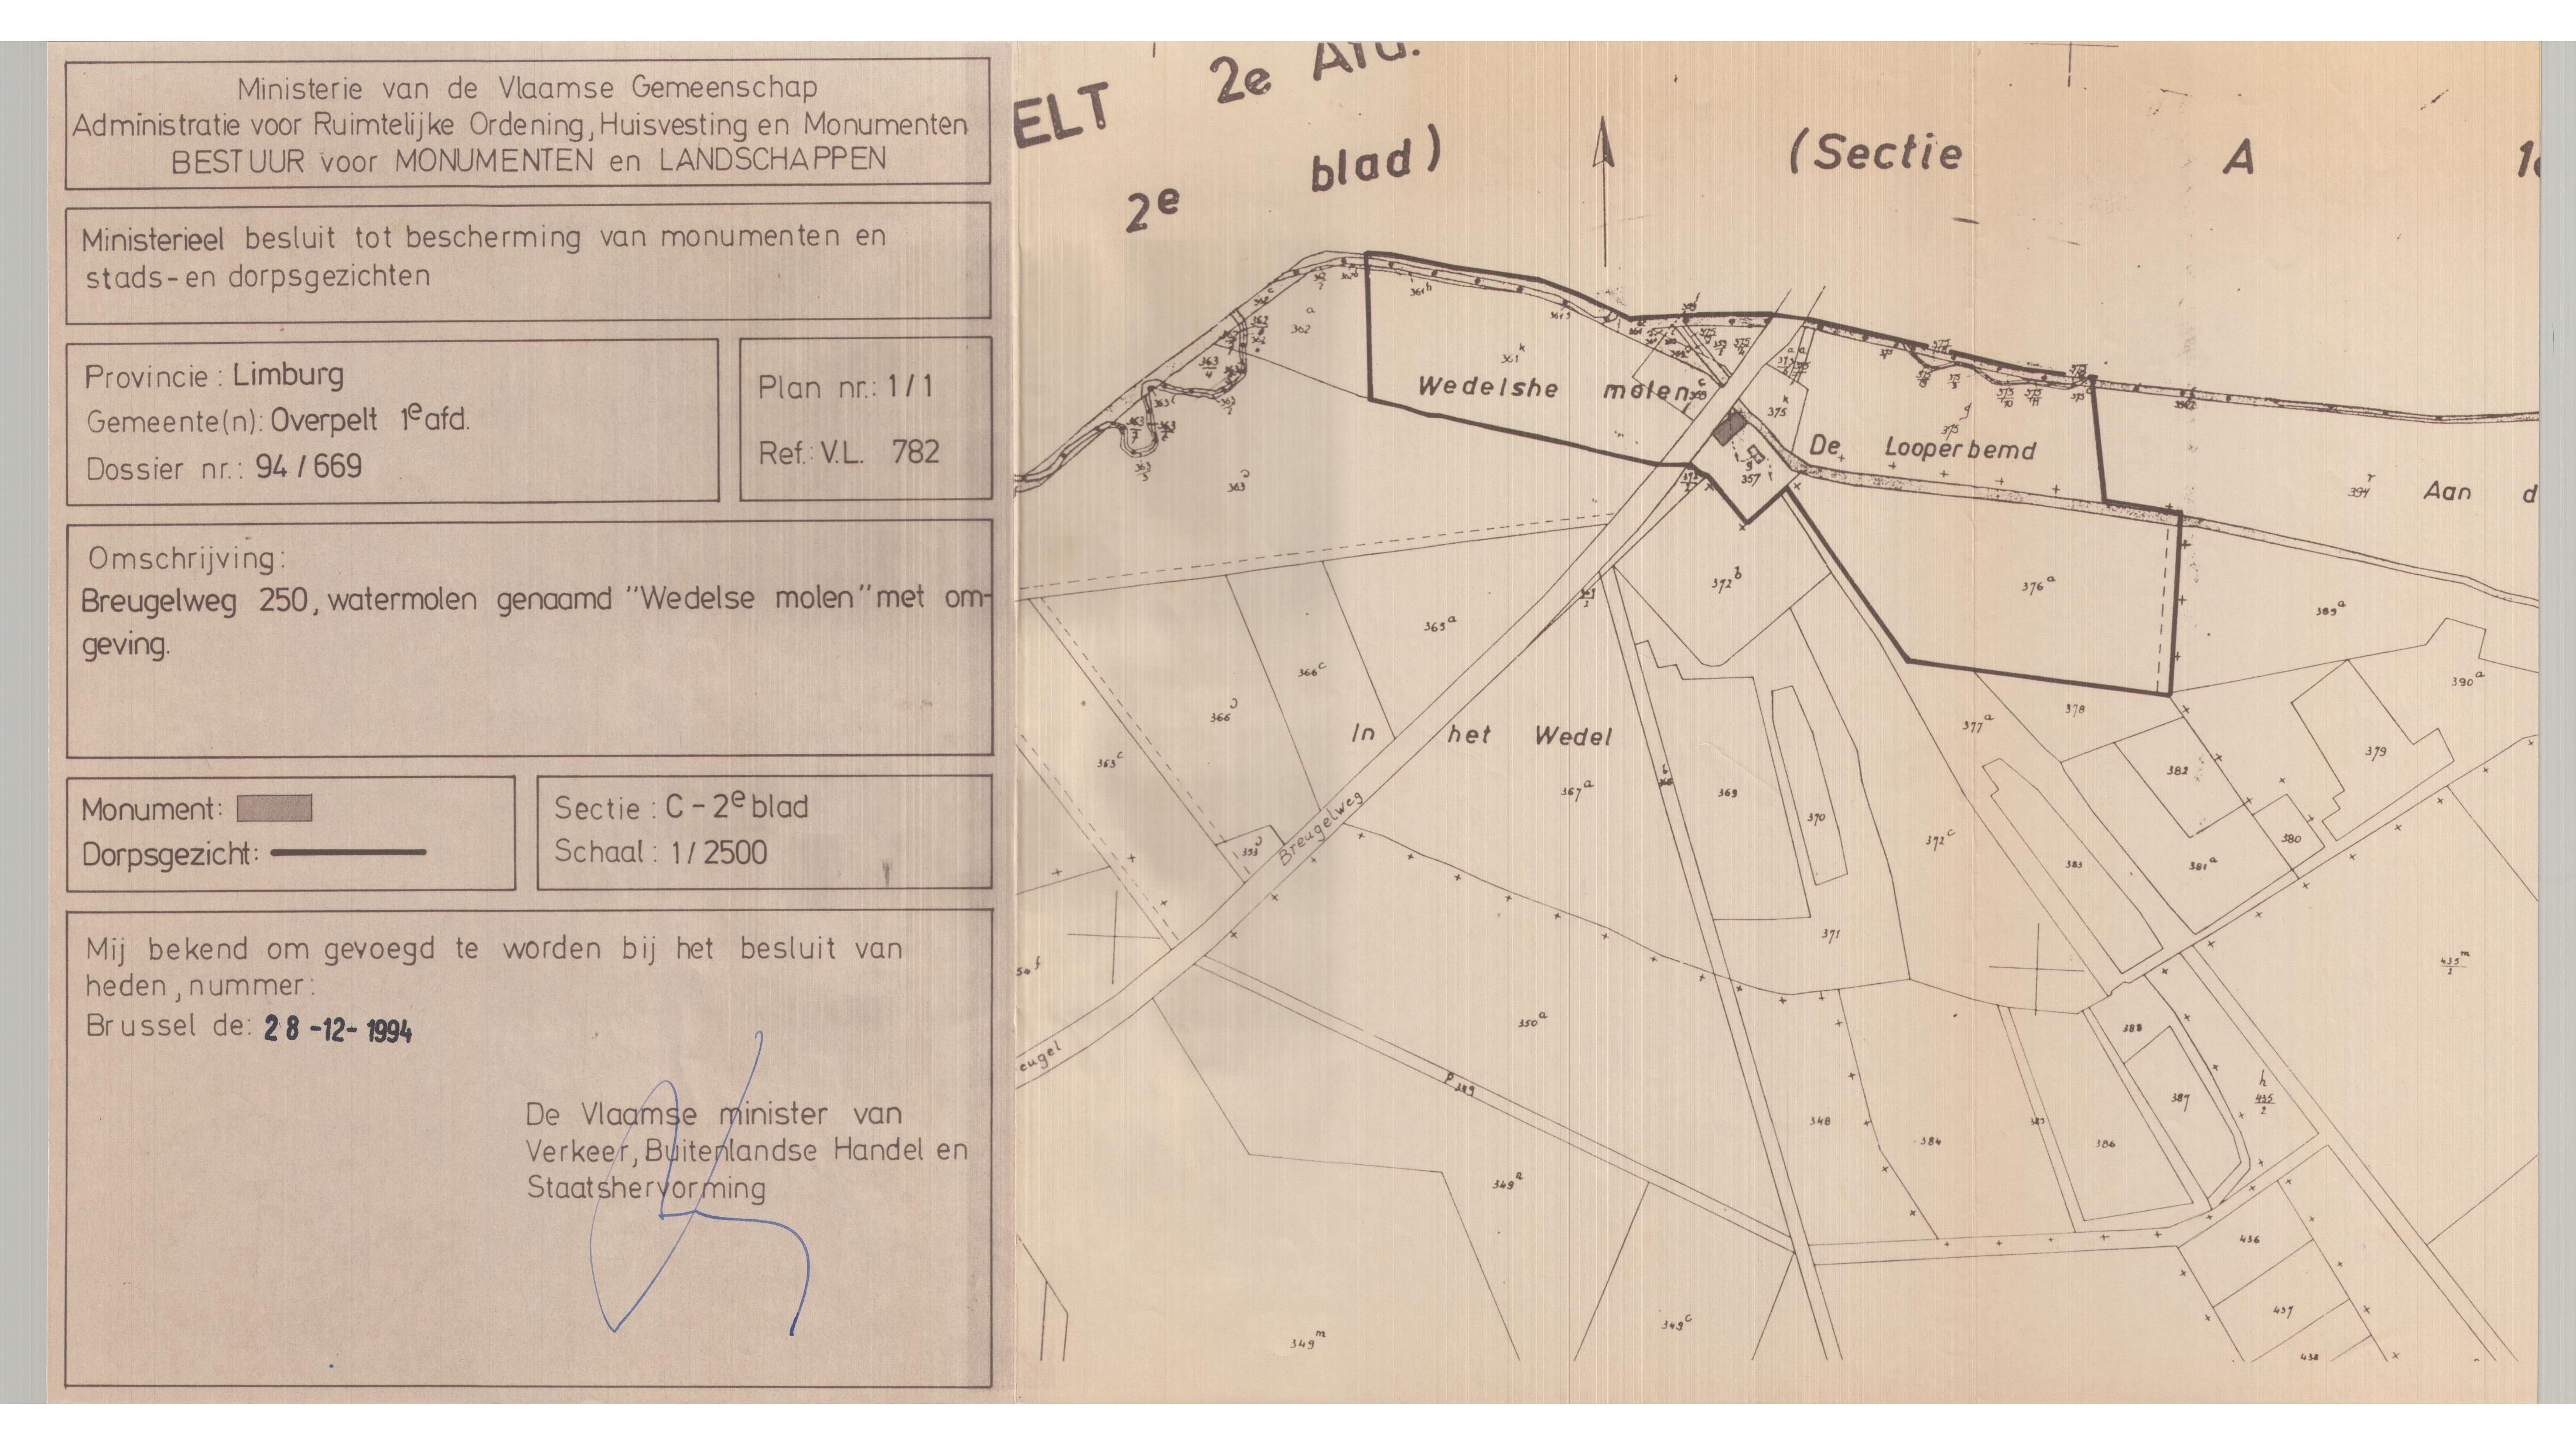 Ministerie van de Vlaamse Gemeenschap
Administratie voor Ruimtelijke Ordening, Huisvesting en Monumenten
BESTUUR voor MONUMENTEN en LANDSCHAPPEN
Ministerieel besluit tot bescherming van monumenten en
stads-en dorpsgezichten
Provincie : Limburg
Gemeente(n): Overpelt 1e afd.
Dossier nr.: 94 / 669
Plan nr.: 1 / 1
Ref.: V.L. 782
Omschrijving:
Breugelweg 250, watermolen genaamd "Wedelse molen" met om-
geving.
Monument:
Dorpsgezicht:
Sectie : C - 2e blad
Schaal : 1 / 2500
Mij bekend om gevoegd te worden bij het besluit van
heden, nummer:
Brussel de: 28-12-1994
De Vlaamse minister van
Verkeer, Buitenlandse Handel en
Staatshervorming
ELT 2e Afd.
2e blad)
(Sectie A
362 a
361 k
Wedelshe molen
375 k
De Looperbemd
357
394 r
Aan d
363
372 b
376 a
389 a
365 a
366 c
366
365 c
In het Wedel
367 a
369
370
371
372 c
377 a
378
382
379
390 a
380
381 a
383
Breugelweg
eugel
350 a
P 389
349 a
349 c
349 m
348
384
386
387
388
h 435/2
435 m
436
437
438